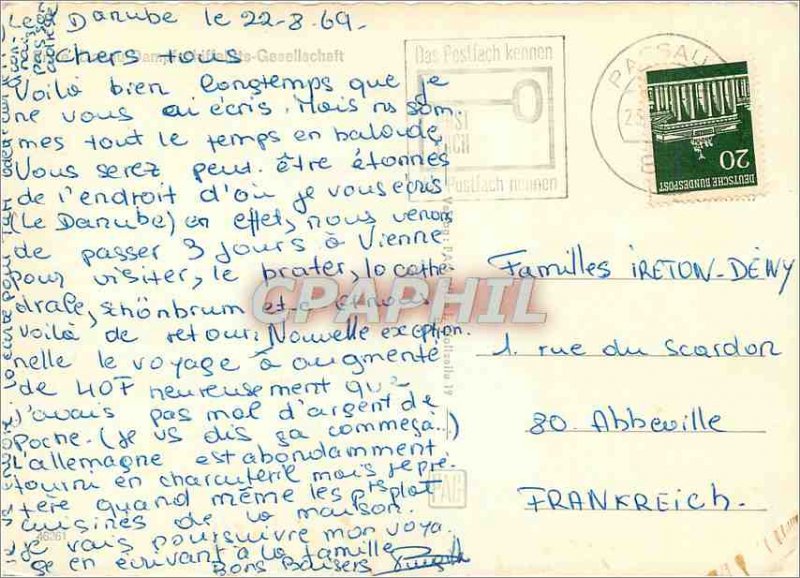 Le Danube le 22-8-69.
Chers tous
Voilà bien longtemps que je
ne vous ai écris. Mais ns som.
mes tout le temps en balade
Vous serez peut-être étonnés
de l'endroit d'où je vous écris
(Le Danube) en effet, nous venons
de passer 3 jours à Vienne
pour visiter, le prater, la cathé
drale, schönbrum etc et nous
voilà de retour. Nouvelle exception.
nelle le voyage à augmenté
de 40F heureusement que
j'avais pas mal d'argent de
poche. (Je vs dis ça comme ça..)
L'allemagne est abondamment
fourni en charcuterie mais je pré.
fère quand même les pts plat
cuisinés de la maison.
Je vais poursuivre mon voya.
ge en écrivant à la famille
Bons Baisers
Dampfschiffahrts-Gesellschaft
46261
Das Postfach kennen
POST
FACH
Postfach nennen
PASSAU
20
DEUTSCHE BUNDESPOST
Familles IRETON-DÉNY
1. rue du Scardon
80. Abbeville
FRANKREICH.
CPAPHIL